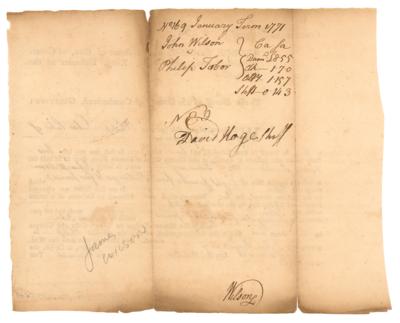 No 169 January Term 1771
John Wilson } Ca Sa
Philip Tabor
170
Atty 1 15 7
Shff 0 14 3
N E I
David Hoge Shff
James
Wilson
Wilson